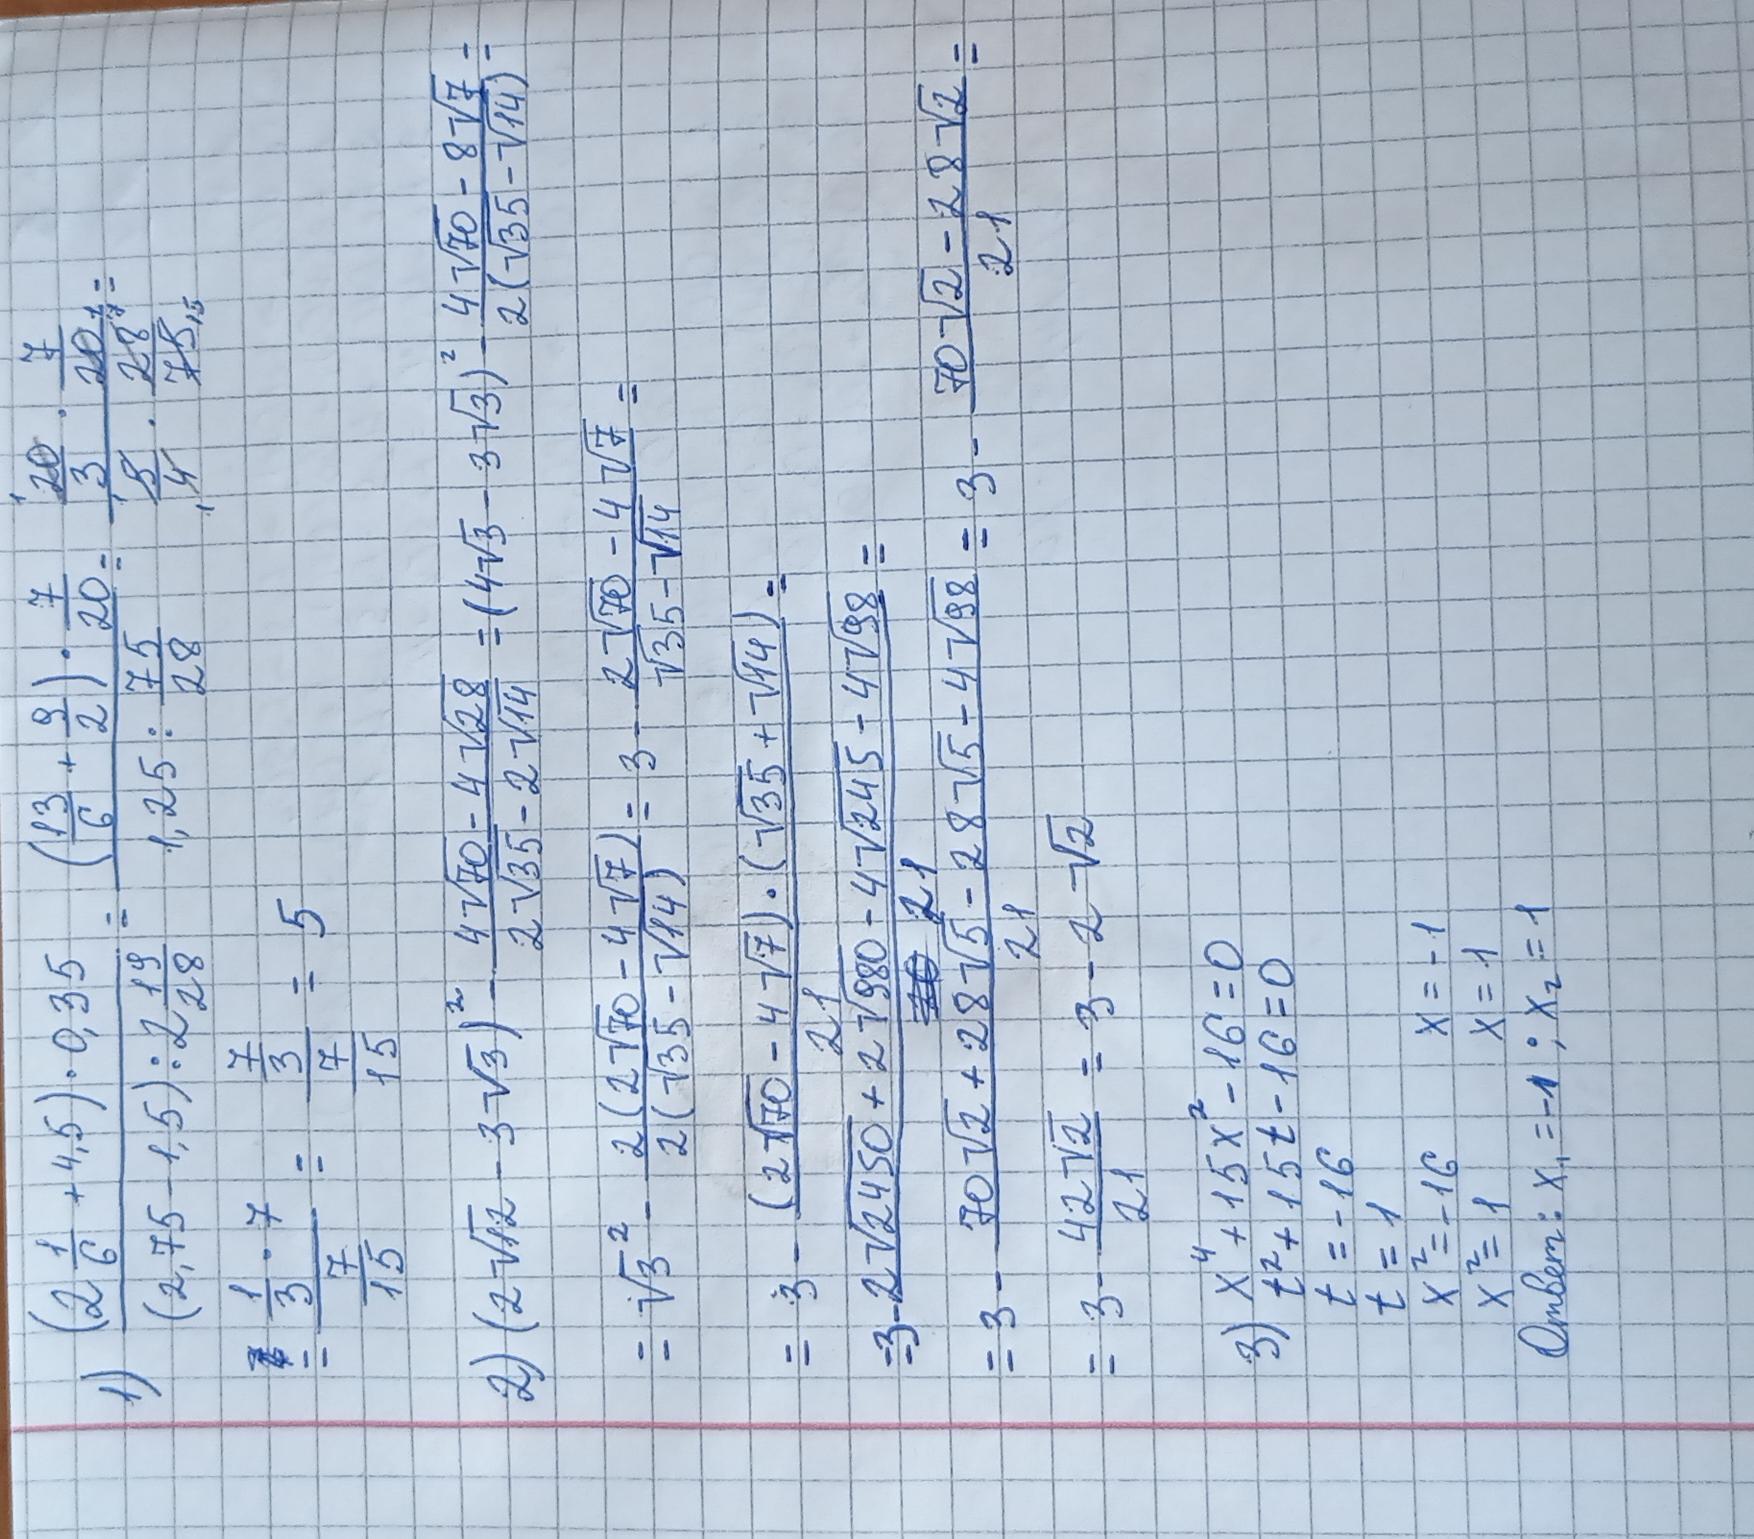 1) ((2 1/6 + 4,5) · 0,35)/((2,75 - 1,5) : 2 19/28) = ((13/6 + 9/2) · 7/20)/(1,25 : 75/28) = (20/3 · 7/20)/(5/4 · 28/75) =
= (1/3 · 7)/(7/15) = (7/3)/(7/15) = 5
2) (2√12 - 3√3)² - (4√70 - 4√28)/(2√35 - 2√14) = (4√3 - 3√3)² - (4√70 - 8√7)/(2(√35 - √14)) =
= √3² - (2(2√70 - 4√7))/(2(√35 - √14)) = 3 - (2√70 - 4√7)/(√35 - √14) =
= 3 - ((2√70 - 4√7) · (√35 + √14))/21 =
= 3 - (2√2450 + 2√980 - 4√245 - 4√98)/21 =
= 3 - (70√2 + 28√5 - 28√5 - 4√98)/21 = 3 - (70√2 - 28√2)/21 =
= 3 - 42√2/21 = 3 - 2√2
3) x⁴ + 15x² - 16 = 0
t² + 15t - 16 = 0
t = -16
t = 1
x² = -16 x = -1
x² = 1 x = 1
Ответ: x₁ = -1 ; x₂ = 1